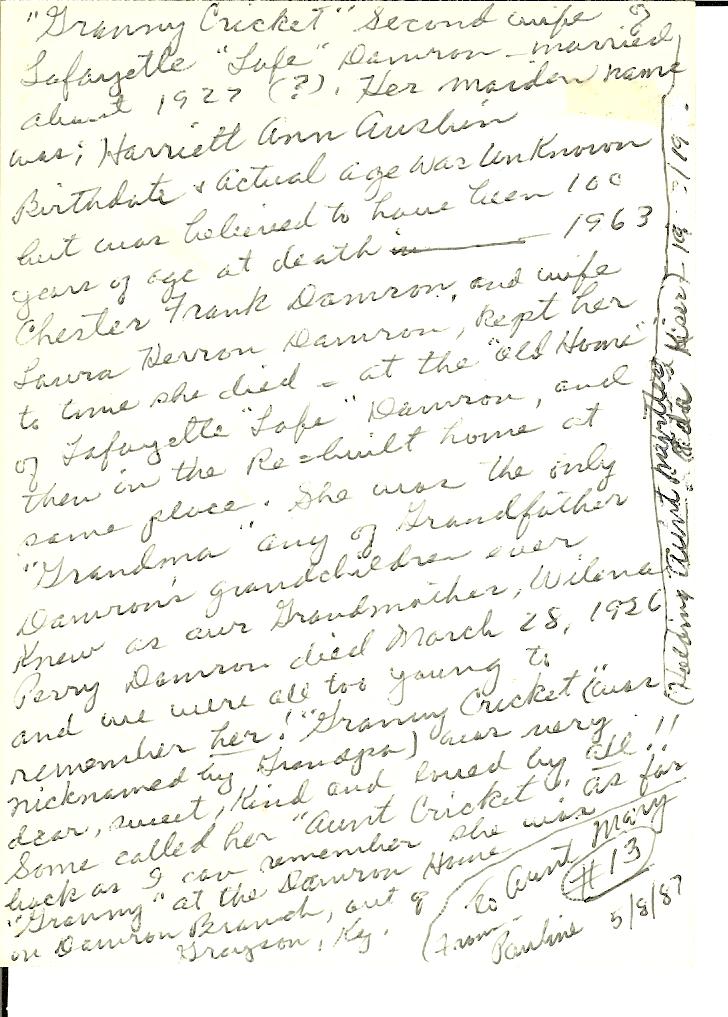 "Granny Cricket" Second wife of
Lafayette "Lafe" Damron - married
about 1927 (?). Her maiden name
was; Harriett Ann Austin
Birthdate & actual age was unknown
but was believed to have been 100
years of age at death 1963
Chester Frank Damron, and wife
Laura Herron Damron, kept her
to time she died - at the "old Home"
of Lafayette "Lafe" Damron, and
then in the Re=built home at
same place. She was the only
"Grandma" any of Grandfather
Damron's grandchildren ever
knew as our Grandmother, Wilena
Perry Damron died March 28, 1926
and we were all too young to
remember her! "Granny Cricket" (was
nicknamed by Grandpa) was very
dear, sweet, kind and loved by all!!
Some called her "Aunt Cricket", as far
back as I can remember she was
"Granny" at the Damron Home
on Damron Branch, out of
Grayson, Ky.
To Aunt Mary
#13
From Pauline 5/8/87
(Holding Aunt
Ada Kiser